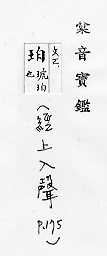 篆音寶鑑
攴三
珀琥珀也
(經上入聲
P.175)